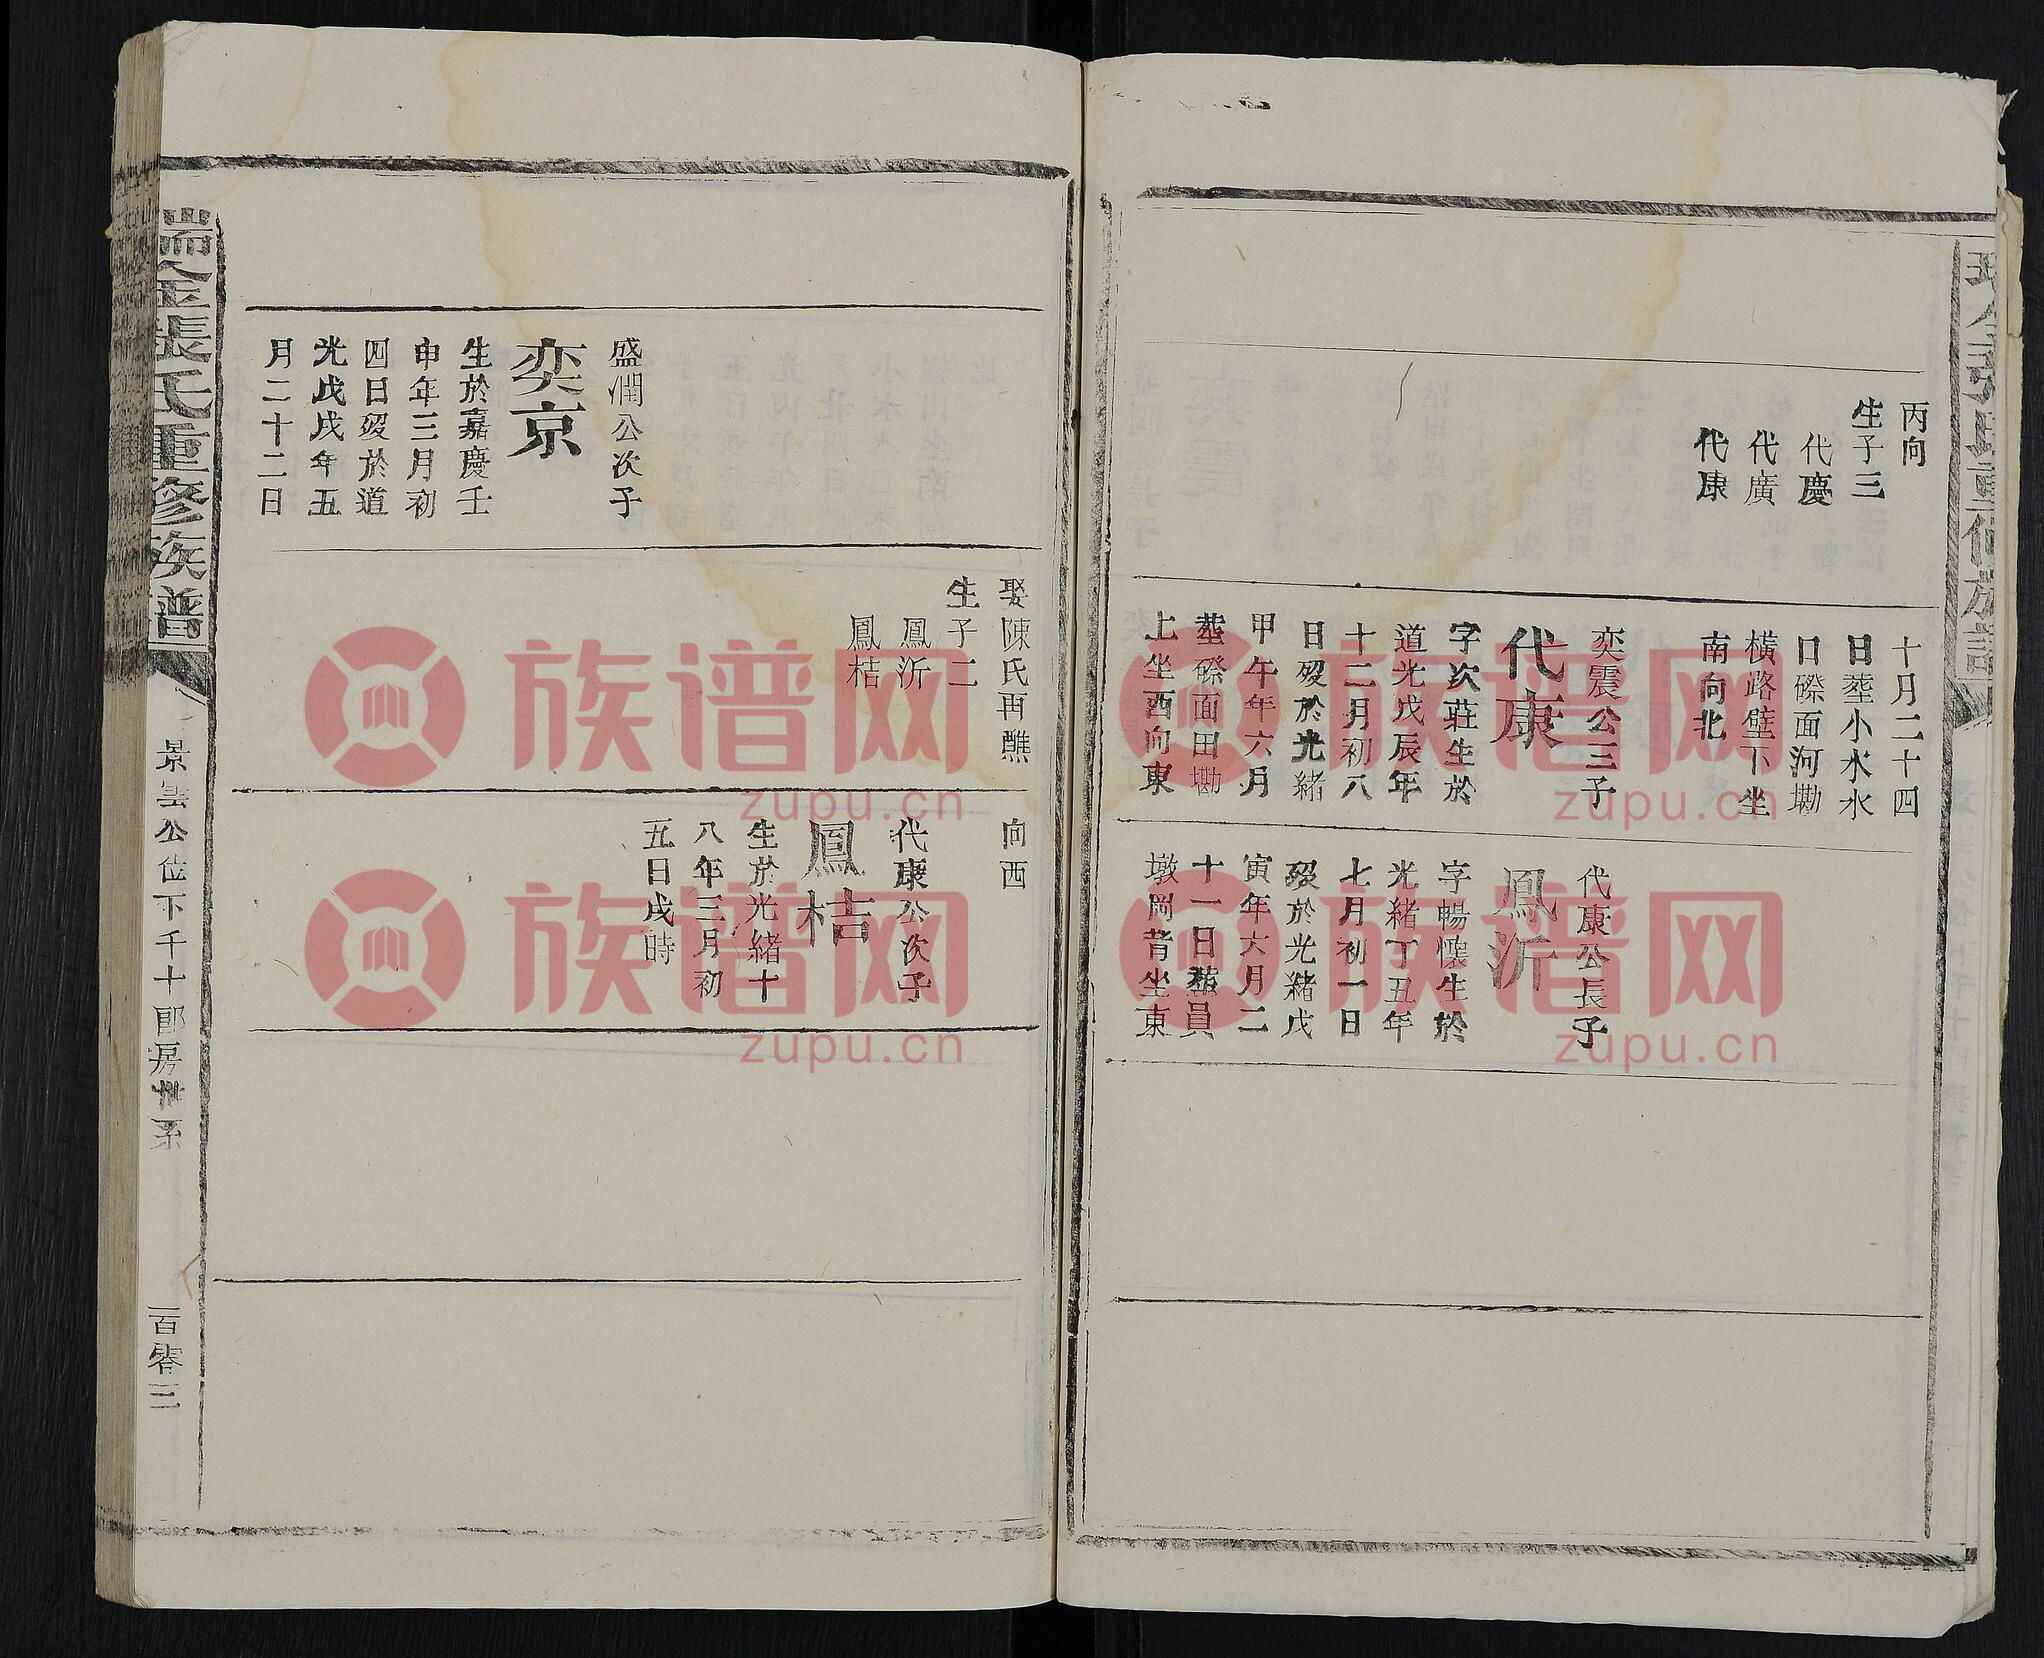 丙向
生子三
代慶
代廣
代康
十月二十四
日塟小水水
口磜面河墈
橫路壁下坐
南向北
奕震公三子
代康
字次莊生於
道光戊辰年
十二月初八
日歿於光緒
甲午年六月
塟磜面田墈
上坐西向東
代康公長子
鳳沂
字暢懷生於
光緒丁丑年
七月初一日
歿於光緒戊
寅年六月二
十一日塟員
墩岡背坐東
盛潤公次子
奕京
生於嘉慶壬
申年三月初
四日歿於道
光戊戌年五
月二十二日
娶陳氏再醮
生子二
鳳沂
鳳桔
向西
代康公次子
鳳桔
生於光緒十
八年三月初
五日戌時
瑞金張氏重修族譜
景雲公位下千十郎房世系
一百零三
族谱网
zupu.cn
族谱网
zupu.cn
族谱网
zupu.cn
族谱网
zupu.cn